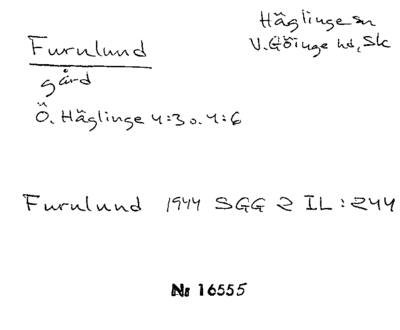 Furulund
gård
Ö. Häglinge 4:3 o. 4:6
Häglinge sn
V. Göinge hd, Sk
Furulund 1944 SGG 2 IL:244
Nr 16555